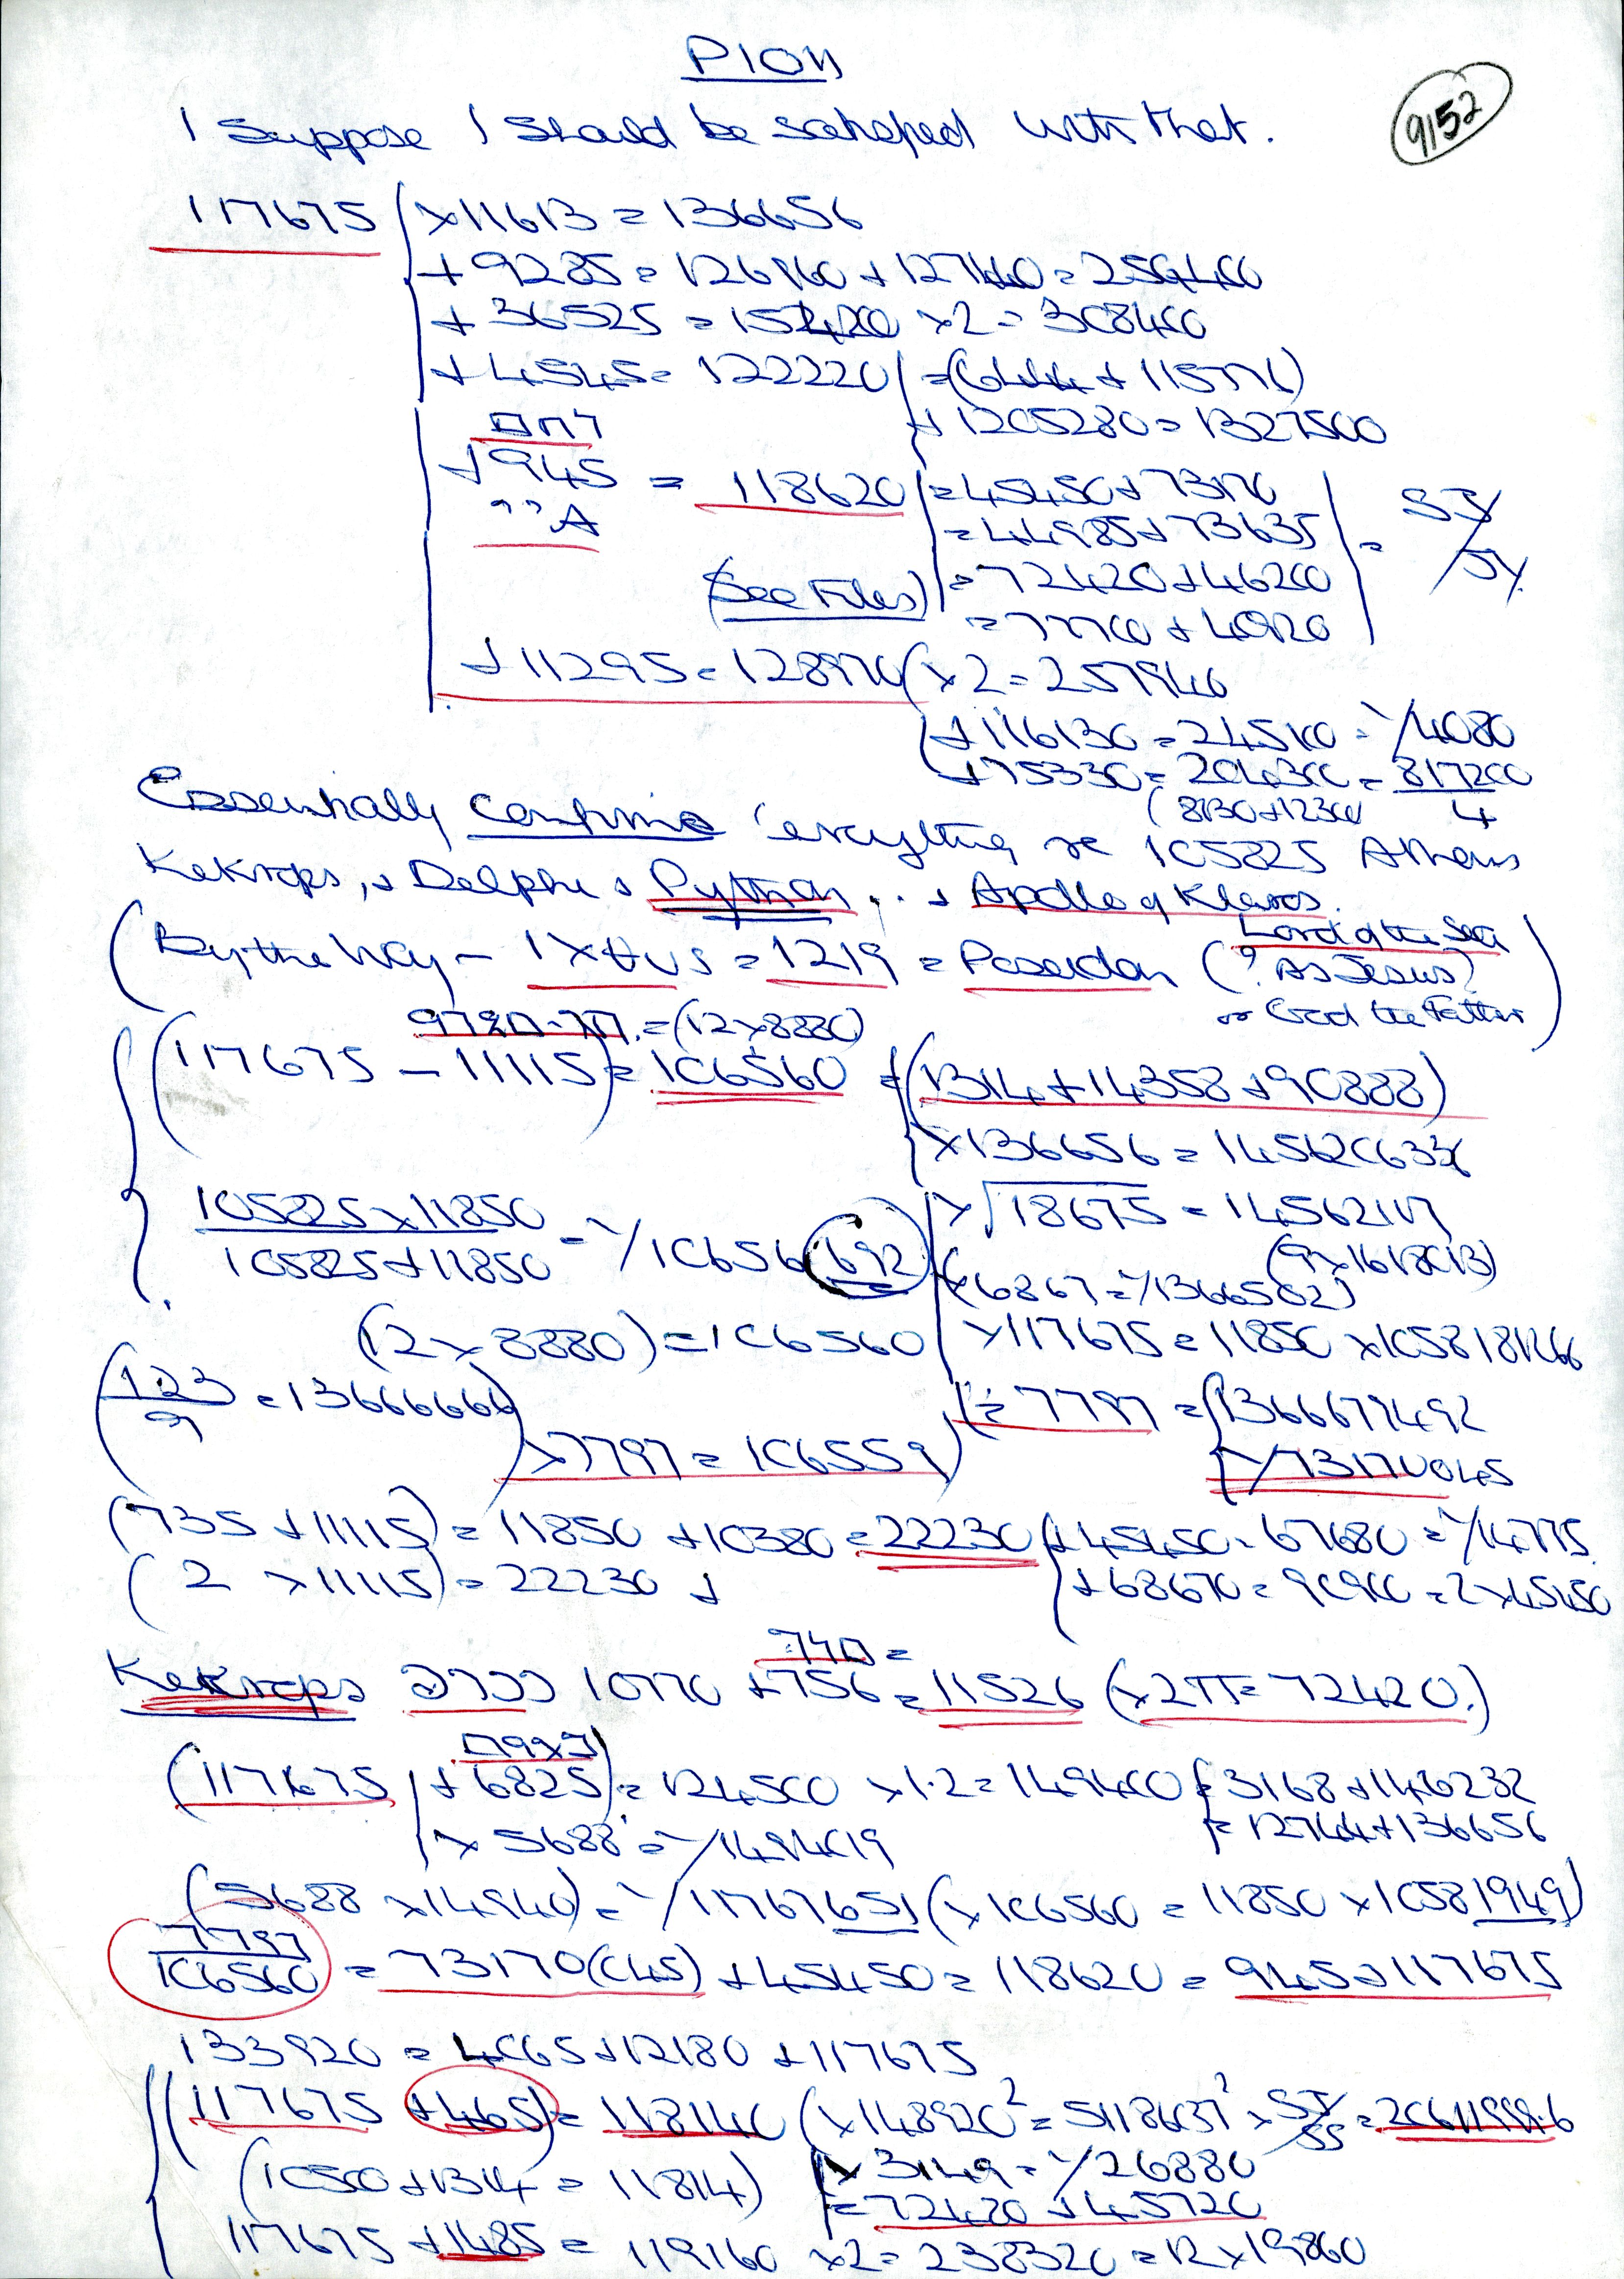 PION
9152
I suppose I should be satisfied with that.
117675 ( × 11613 = 136656
+ 9285 = 126960 + 127440 = 254400
+ 36525 = 154200 × 2 = 308400
+ 4545 = 122220 = (6444 + 115776)
+ 1205280 = 1327500
+ 945 = 118620 = 45450 + 73170
= 44985 + 73635
(See Files) = 72420 + 46200
= 77700 + 40920
= SJ/JY
+ 11295 = 128970 ( × 2 = 257940
+ 116130 = 245100 = 1/4080
+ 75330 = 204300 = 817200/4
Essentially confirms everything re 105825 Athens
Kekrops, + Delphi + Python .. + Apollo of Klaros.
(By the Way – IXθUS = 1219 = Poseidon (? As Jesus?
Lord of the Sea
or God the Father)
= (12 × 8880)
(117675 – 11115) = 106560 = (1314 + 14358 + 90888)
× 136656 = 1456206336
105825 × 11850 / 105825 + 11850 = 1/10656 692
× √18675 = 14562117
(9 × 161801B)
(× 6867 = 1/13665802)
(12 × 8880) = 106560
× 117675 = 11850 × 10581811266
(123/9 = 13666666) × 7797 = 106559)
÷ 7797 = 1366679492
1/73170045
(735 + 11115) = 11850 + 10380 = 22230 + 45450 = 67680 = 1/14775
(2 × 11115) = 22230 + + 68670 = 90900 = 2 × 45450
Kekrops 10770 + 756 = 11526 (× 2π = 72420.)
(117675 + 6825) = 124500 × 1.2 = 149400 = 3168 + 146232
= 12744 + 136656
× 5688 = 1/1494019
(5688 × 14940) = 1/11767651 (× 106560 = 11850 × 10581949)
7797/106560 = 73170(045) + 45450 = 118620 = 945 + 117675
133920 = 4065 + 12180 + 117675
(117675 + 465) = 118140 (× 148920² = 5118637² × SJ/SS = 20611999.6
(10500 + 1314 = 11814) × 3149 = 1/26880
= 72420 + 45720
117675 + 1485 = 119160 × 2 = 238320 = 12 × 19860